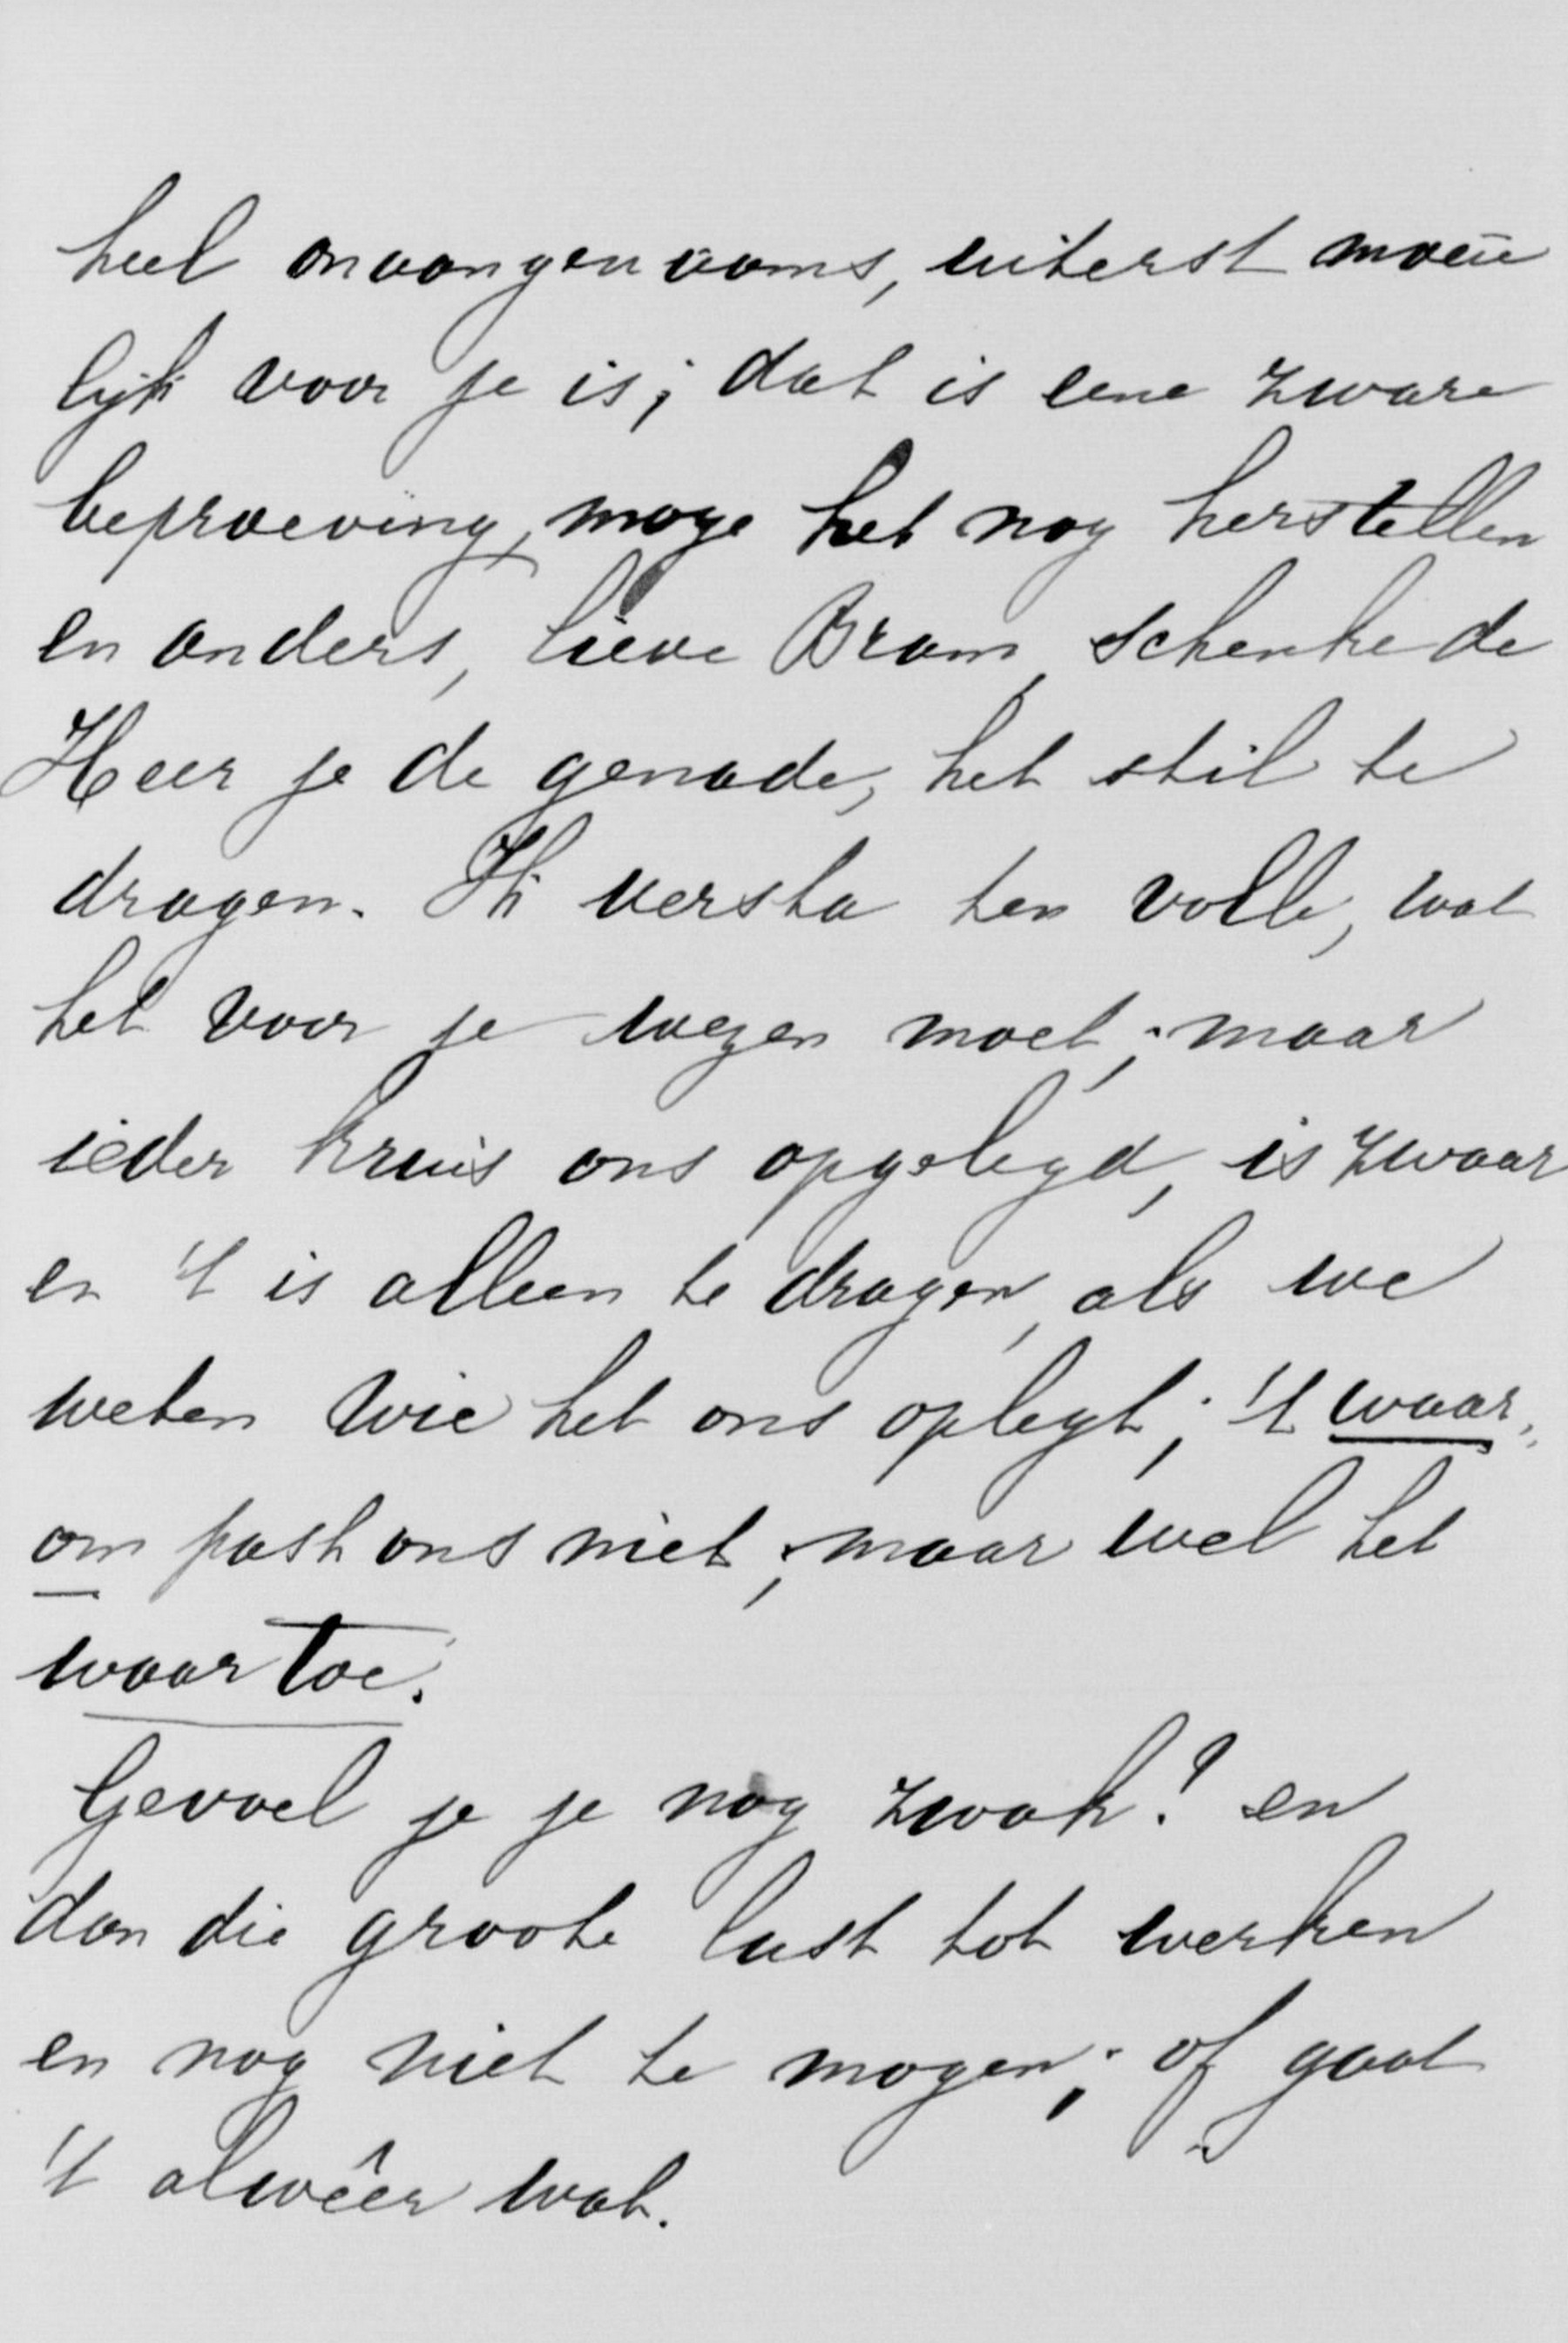 heel onaangenaams, uiterst moeie
lijk voor je is; dat is eene zware
beproeving, moge het nog herstellen
en anders, lieve Bram, schenke de
Heer je de genade, het stil te
dragen. Ik versta ten volle, wat
het voor je wezen moet; maar
ieder kruis ons opgelegd, is zwaar
en 't is alleen te dragen, als we
weten Wie het ons oplegt; 't waar„
om past ons niet; maar wel het
waartoe.
Gevoel je je nog zwak? en
dan die groote lust tot werken
en nog niet te mogen; of gaat
't alwêer wat.